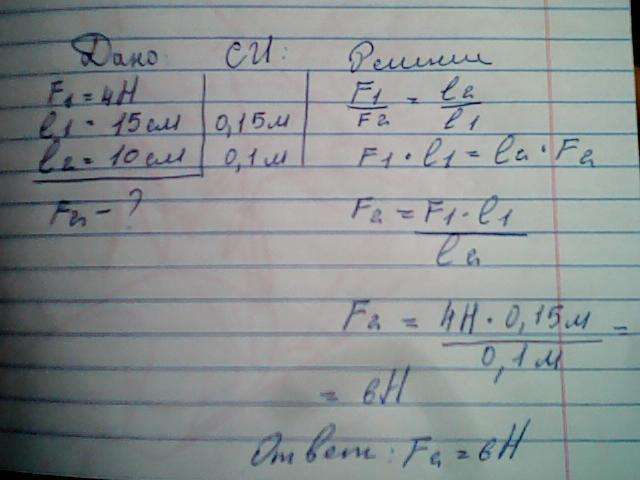 Дано: СИ: Решение
F1 = 4Н
l1 = 15см 0,15м
l2 = 10см 0,1м
F2 - ?
F1/F2 = l2/l1
F1 · l1 = l2 · F2
F2 = F1 · l1 / l2
F2 = 4Н · 0,15м / 0,1м =
= 6Н
Ответ: F2 = 6Н